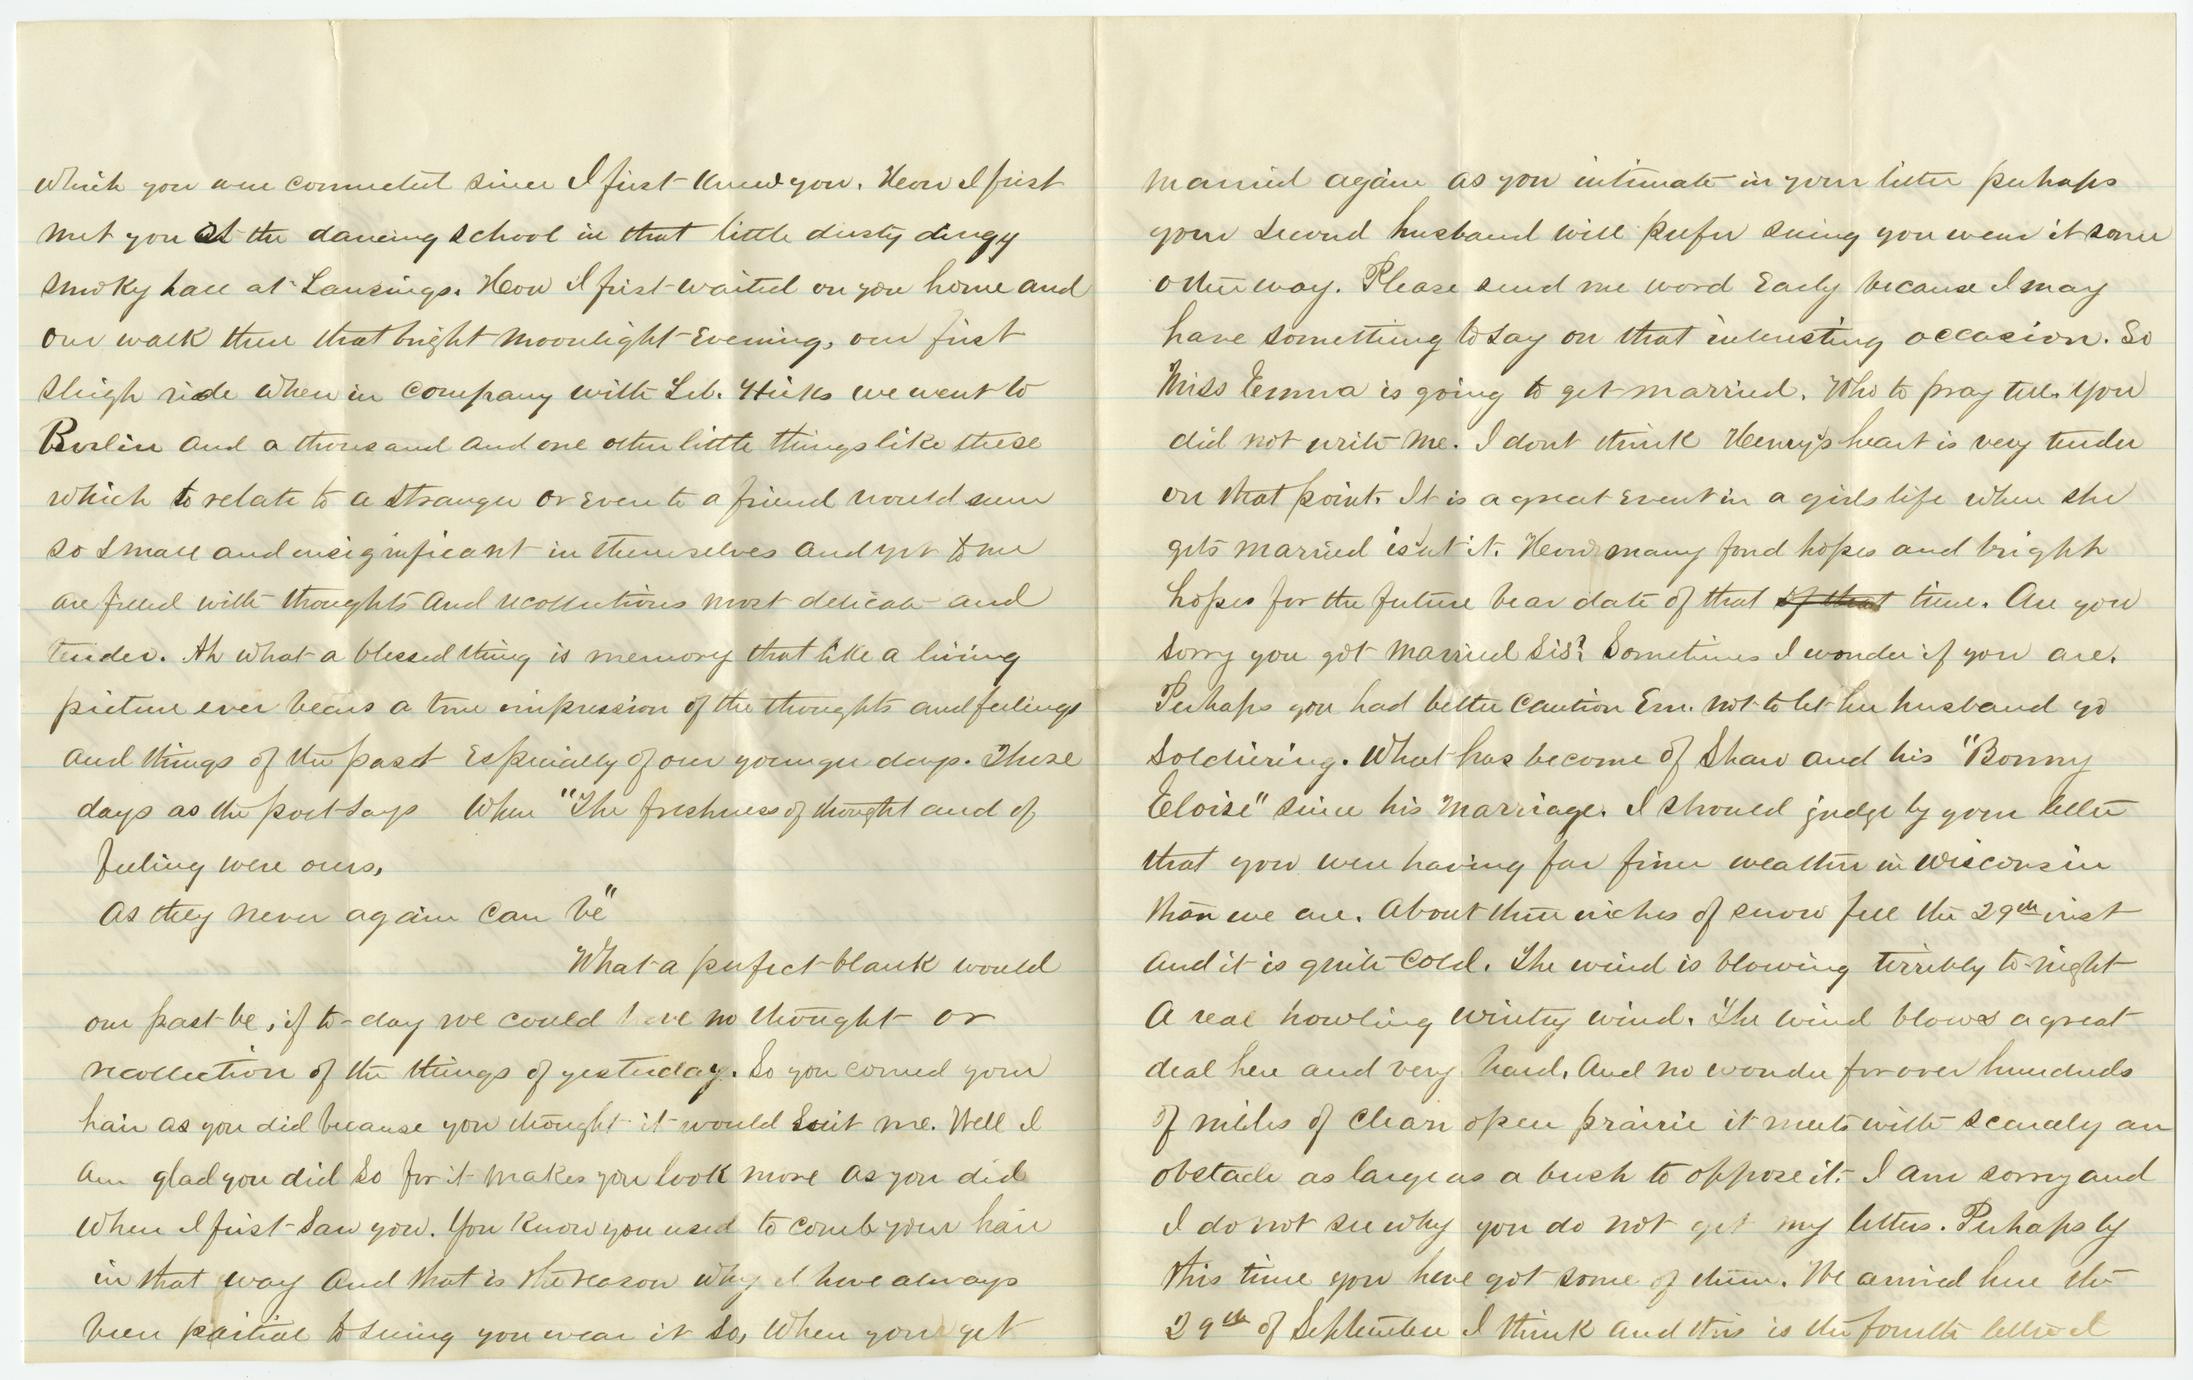 which you are connected since I first knew you. How I first
met you at the dancing school in that little dusty dingy
smoky hall at Lansings. How I first waited on you home and
our walk there that bright moonlight Evening, our first
sleigh ride when in company with Lib. Hicks we went to
Berlin and a thousand and one other little things like these
which to relate to a stranger or even to a friend would seem
so small and insignificant in themselves and yet to me
are filled with thoughts and recollections most delicate and
tender. Ah what a blessed thing is memory that like a living
picture ever bears a true impression of the thoughts and feelings
and things of the past Especially of our younger days. Those
days as the poet says When "The freshness of thought and of
feeling were ours,
As they never again can be"
What a perfect blank would
our past be, if to-day we could have no thought or
recollection of the things of yesterday. So you comed your
hair as you did because you thought it would suit me. Well I
am glad you did so for it makes you look more as you did
when I first saw you. You know you used to comb your hair
in that way and that is the reason why I have always
been partial to seeing you wear it so, When you get
married again as you intimate in your letter perhaps
your second husband will prefer seeing you wear it some
other way. Please send me word Early because I may
have something to say on that interesting occasion. So
Miss Emma is going to get married. Who to pray tell. You
did not write me. I dont think Henry's heart is very tender
on that point. It is a great event in a girls life when she
gets married is'nt it. How many fond hopes and bright
hopes for the future bear date of that of that time. Are you
sorry you got married Sis? Sometimes I wonder if you are.
Perhaps you had better caution Em. not to let her husband go
soldiering. What has become of Shaw and his "Bonny
Eloise" since his marriage. I should judge by your letter
that you were having far finer weather in Wisconsin
than we are. About three inches of snow fell the 29th inst
and it is quite cold. The wind is blowing terribly to-night
A real howling wintry wind. The wind blows a great
deal here and very hard. And no wonder for over hundreds
of miles of clean open prairie it meets with scarcely an
obstacle as large as a bush to oppose it. I am sorry and
I do not see why you do not get my letters. Perhaps by
this time you have got some of them. We arrived here the
29th of September I think and this is the fourth letter I